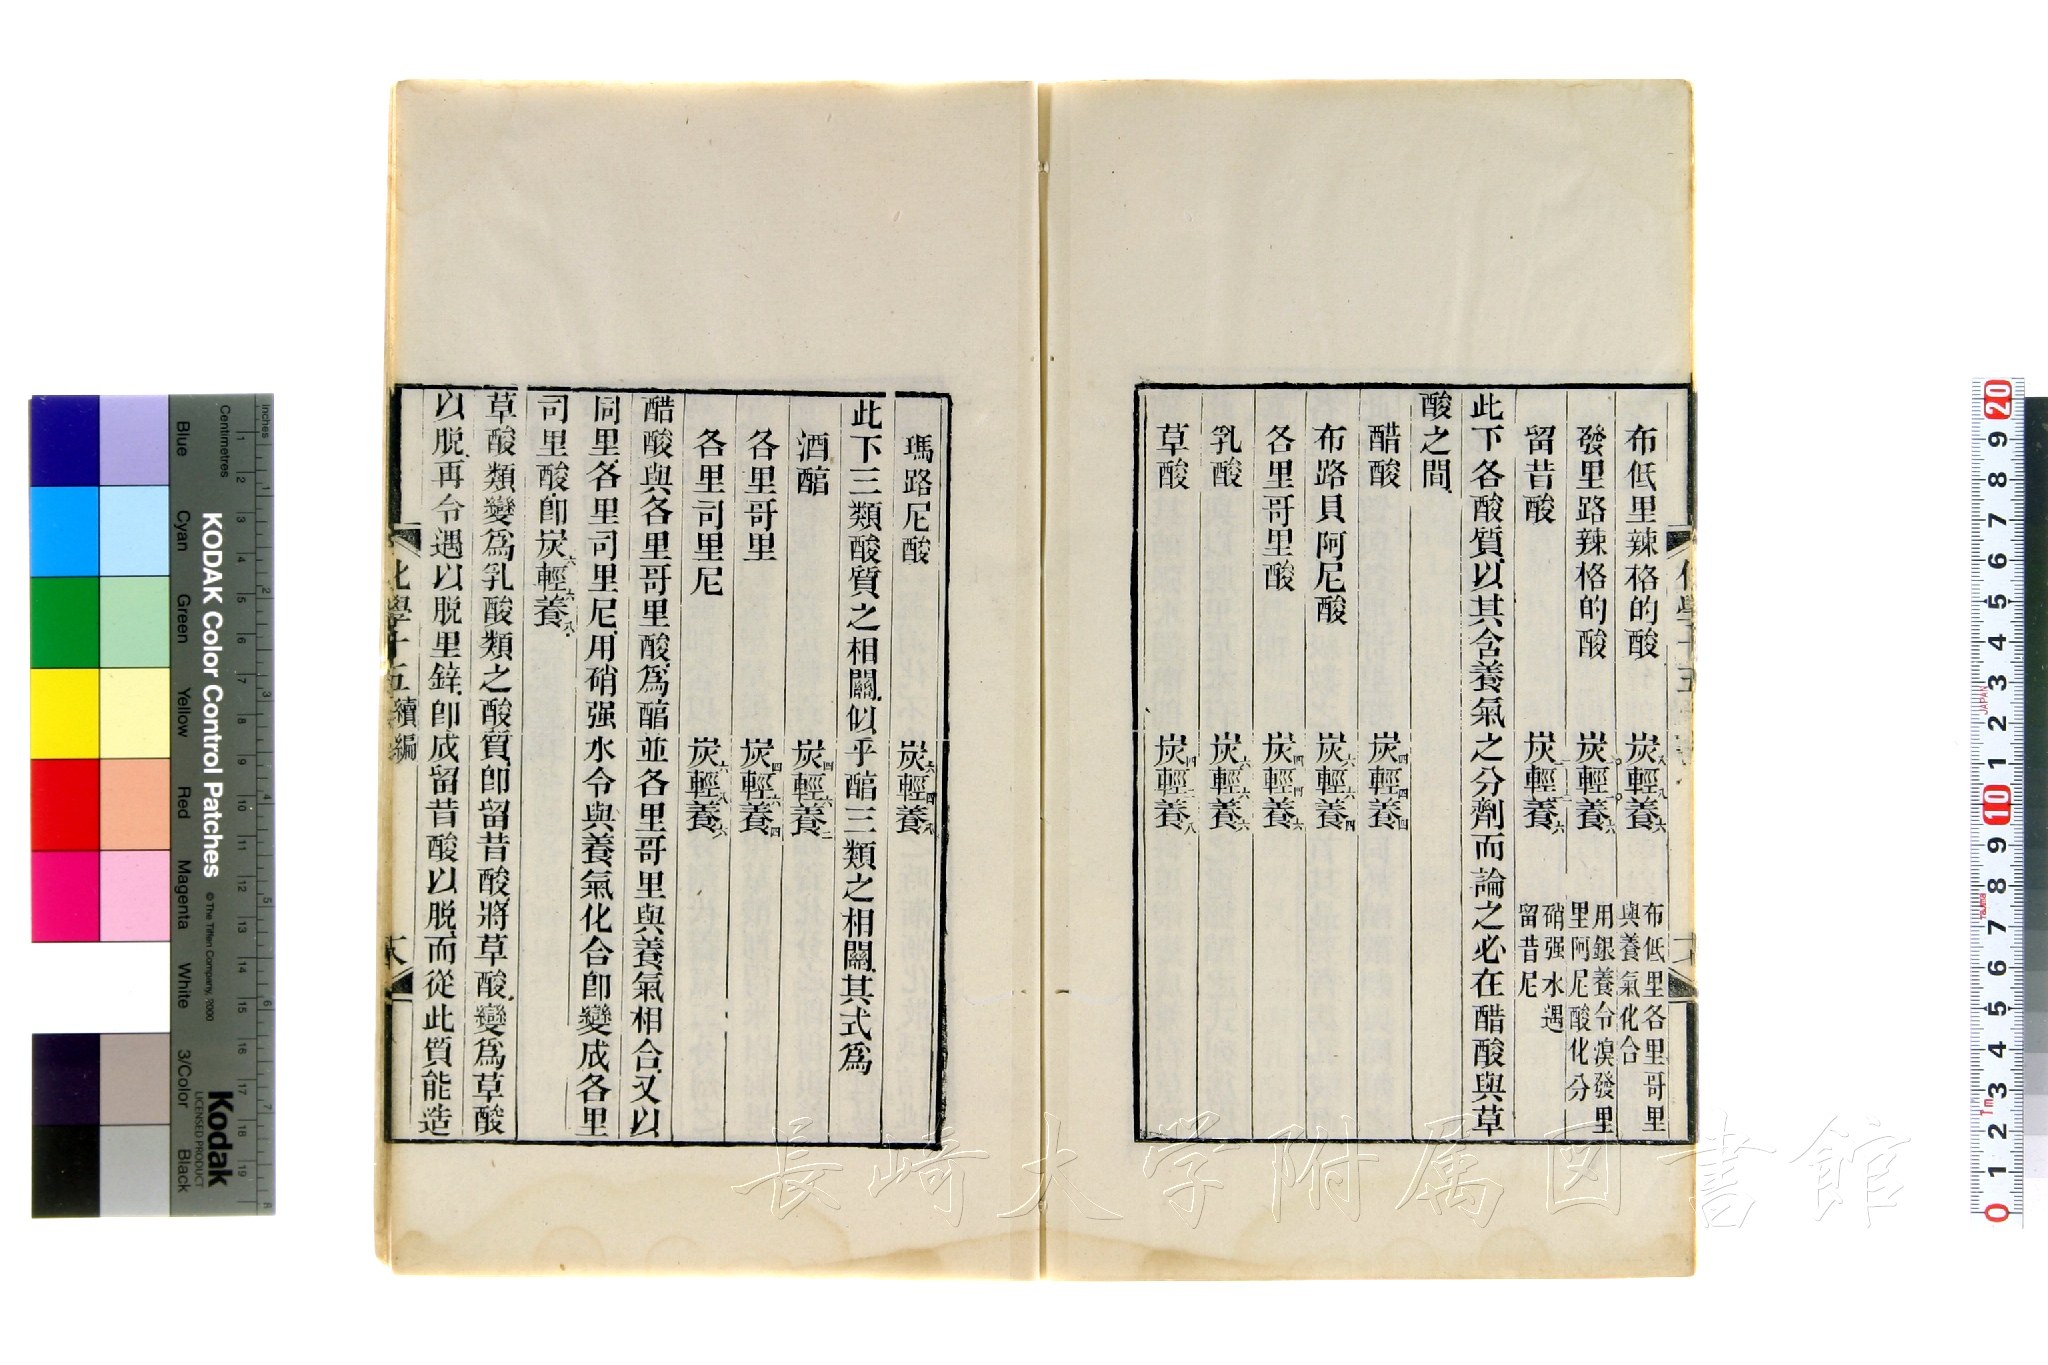 布低里辣格的酸 炭八輕八養六 布低里各里哥里與養氣化合
發里路辣格的酸 炭一〇輕一〇養六 用銀養令溴發里里阿尼酸化分
留昔酸 炭一二輕一二養六 硝强水遇留昔尼
此下各酸質以其含養氣之分劑而論之必在醋酸與草
酸之間
醋酸 炭四輕四養四
布路貝阿尼酸 炭六輕六養四
各里哥里酸 炭四輕四養六
乳酸 炭六輕六養六
草酸 炭四輕二養八
瑪路尼酸 炭六輕四養八
此下三類酸質之相關似乎醕三類之相關其式爲
酒醕 炭四輕六養二
各里哥里 炭四輕六養四
各里司里尼 炭六輕八養六
醋酸與各里哥里酸爲醕並各里哥里與養氣相合又以
同里各里司里尼用硝强水令與養氣化合卽變成各里
司里酸卽炭六輕六養八
草酸類變爲乳酸類之酸質卽留昔酸將草酸變爲草酸
以脱再令遇以脱里鋅卽成留昔酸以脱而從此質能造
化學十五 續編
KODAK Color Control Patches
© The Tiffen Company, 2000
Kodak
LICENSED PRODUCT
Inches
Centimetres
Blue
Cyan
Green
Yellow
Red
Magenta
White
3/Color
Black
長崎大学附属図書館
JAPAN
Tajima
Tm